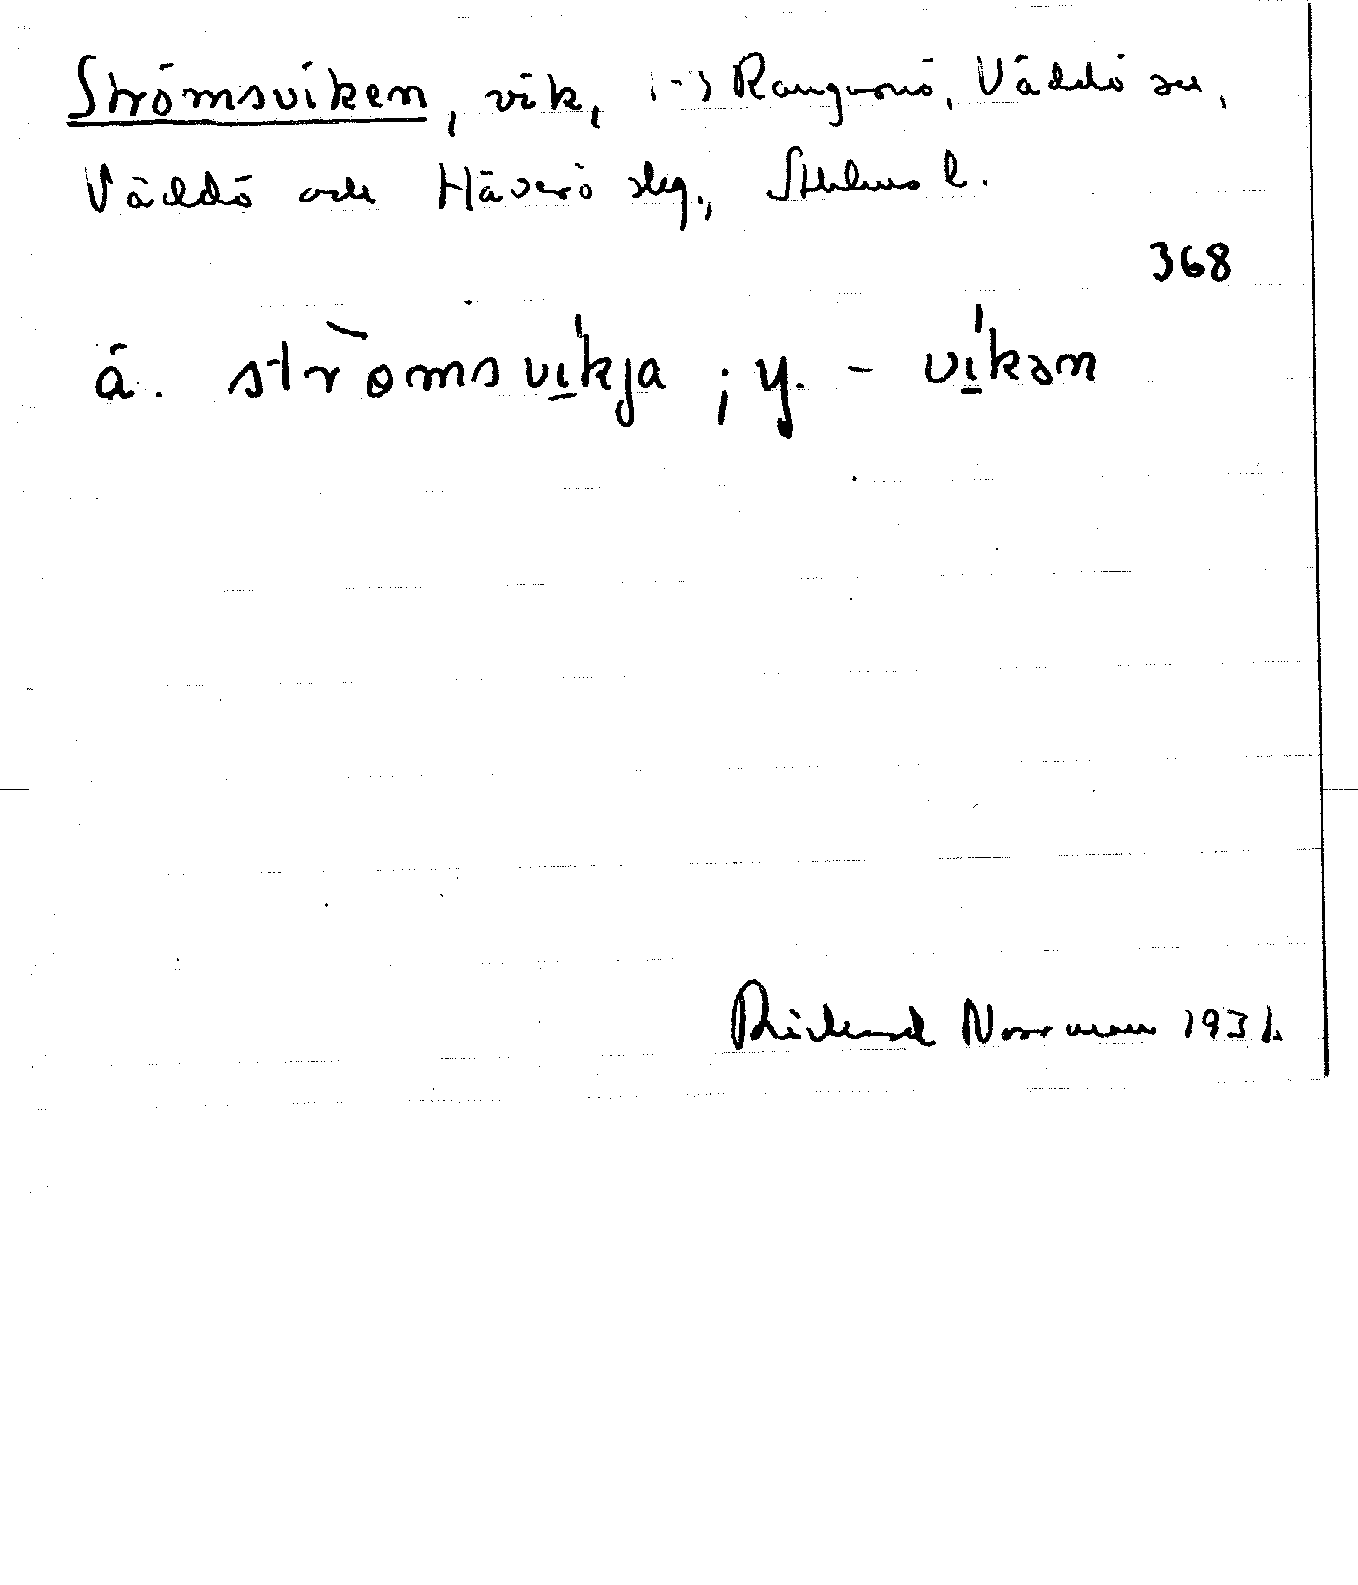 Strömsviken, vik, Rangarnö, Väddö sn,
Väddö och Häverö skg., Sthlms l.
368
ä. strömsvíkja ; y. - víkən
Rickard Norrman 193